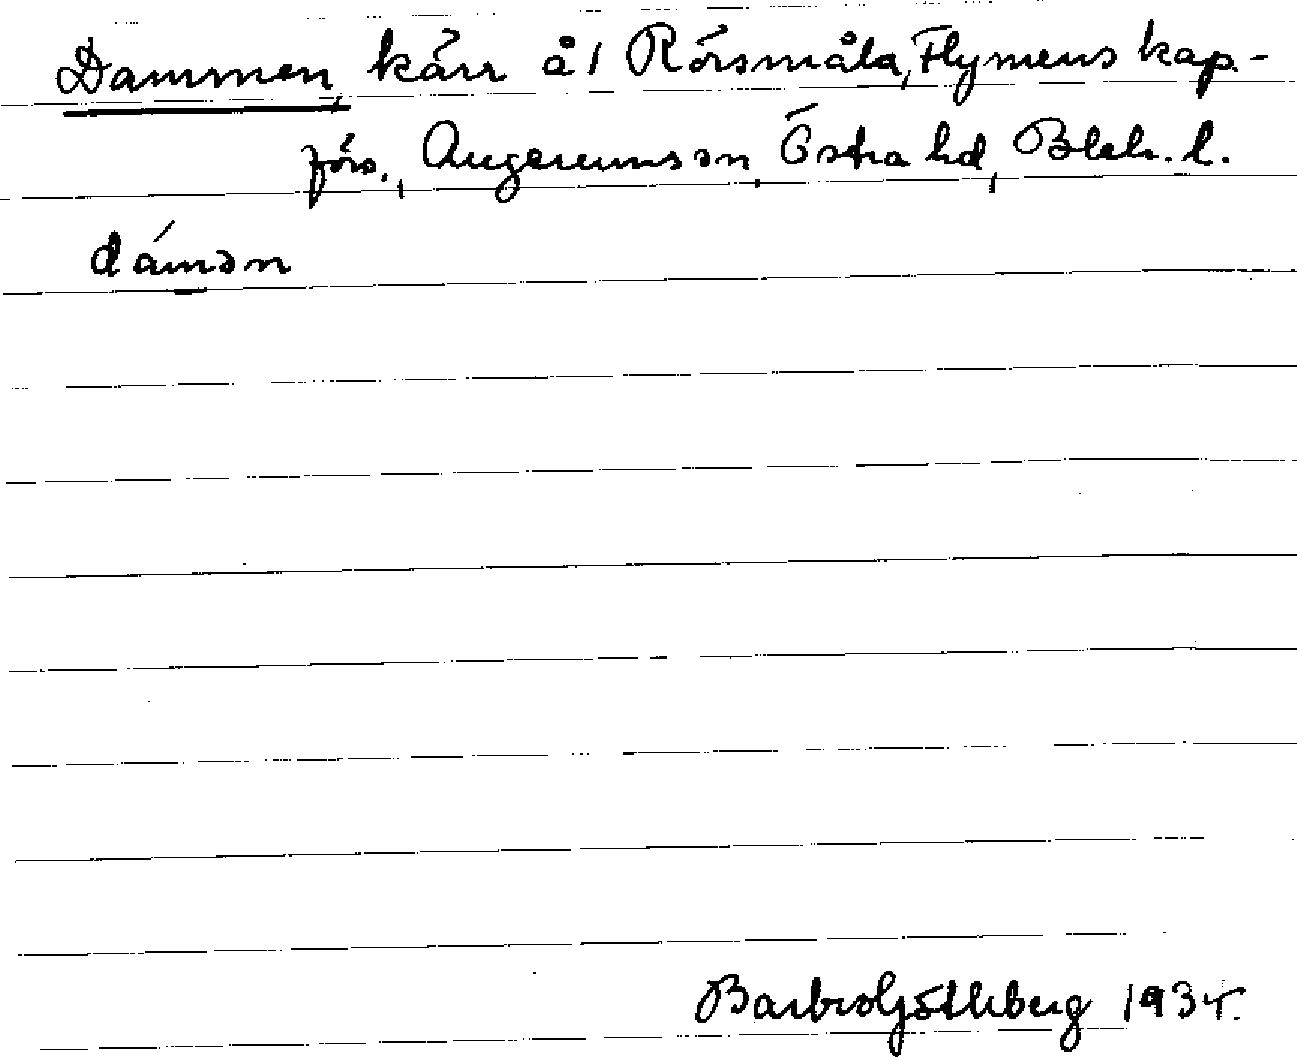 Dammen, kärr å 1 Rörsmåla, Flymens kap.-
förs., Augerumssn, Östra hd, Blek. l.
dámən
Barbro Götlberg 1935.